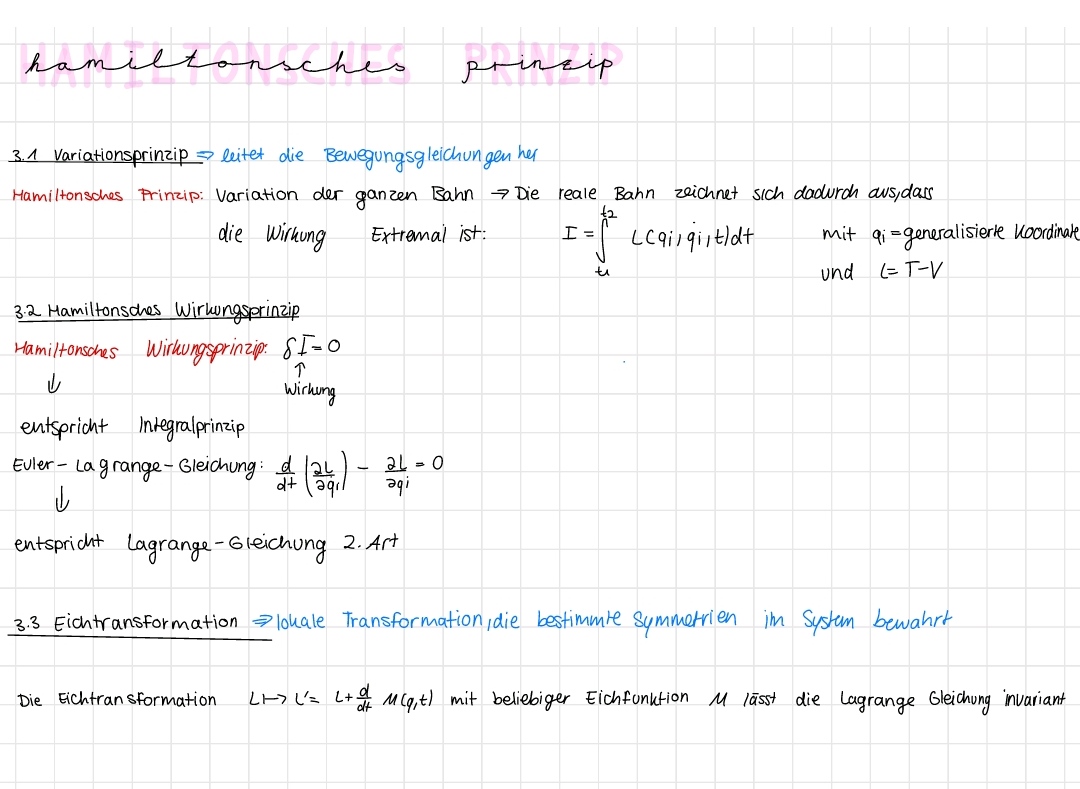 HAMILTONSCHES PRINZIP
hamiltonsches prinzip
3.1 Variationsprinzip ⇒ leitet die Bewegungsgleichungen her
Hamiltonsches Prinzip: Variation der ganzen Bahn → Die reale Bahn zeichnet sich dadurch aus, dass
die Wirkung Extremal ist: I = ∫_{t1}^{t2} L(qi, q̇i, t)dt mit qi = generalisierte Koordinate
und L = T-V
3.2 Hamiltonsches Wirkungsprinzip
Hamiltonsches Wirkungsprinzip: δI = 0
↑
↓ Wirkung
entspricht Integralprinzip
Euler-Lagrange-Gleichung: d/dt (∂L/∂q̇i) - ∂L/∂qi = 0
↓
entspricht Lagrange-Gleichung 2. Art
3.3 Eichtransformation ⇒ lokale Transformation, die bestimmte Symmetrien im System bewahrt
Die Eichtransformation L ↦ L' = L + d/dt M(q,t) mit beliebiger Eichfunktion M lässt die Lagrange Gleichung invariant